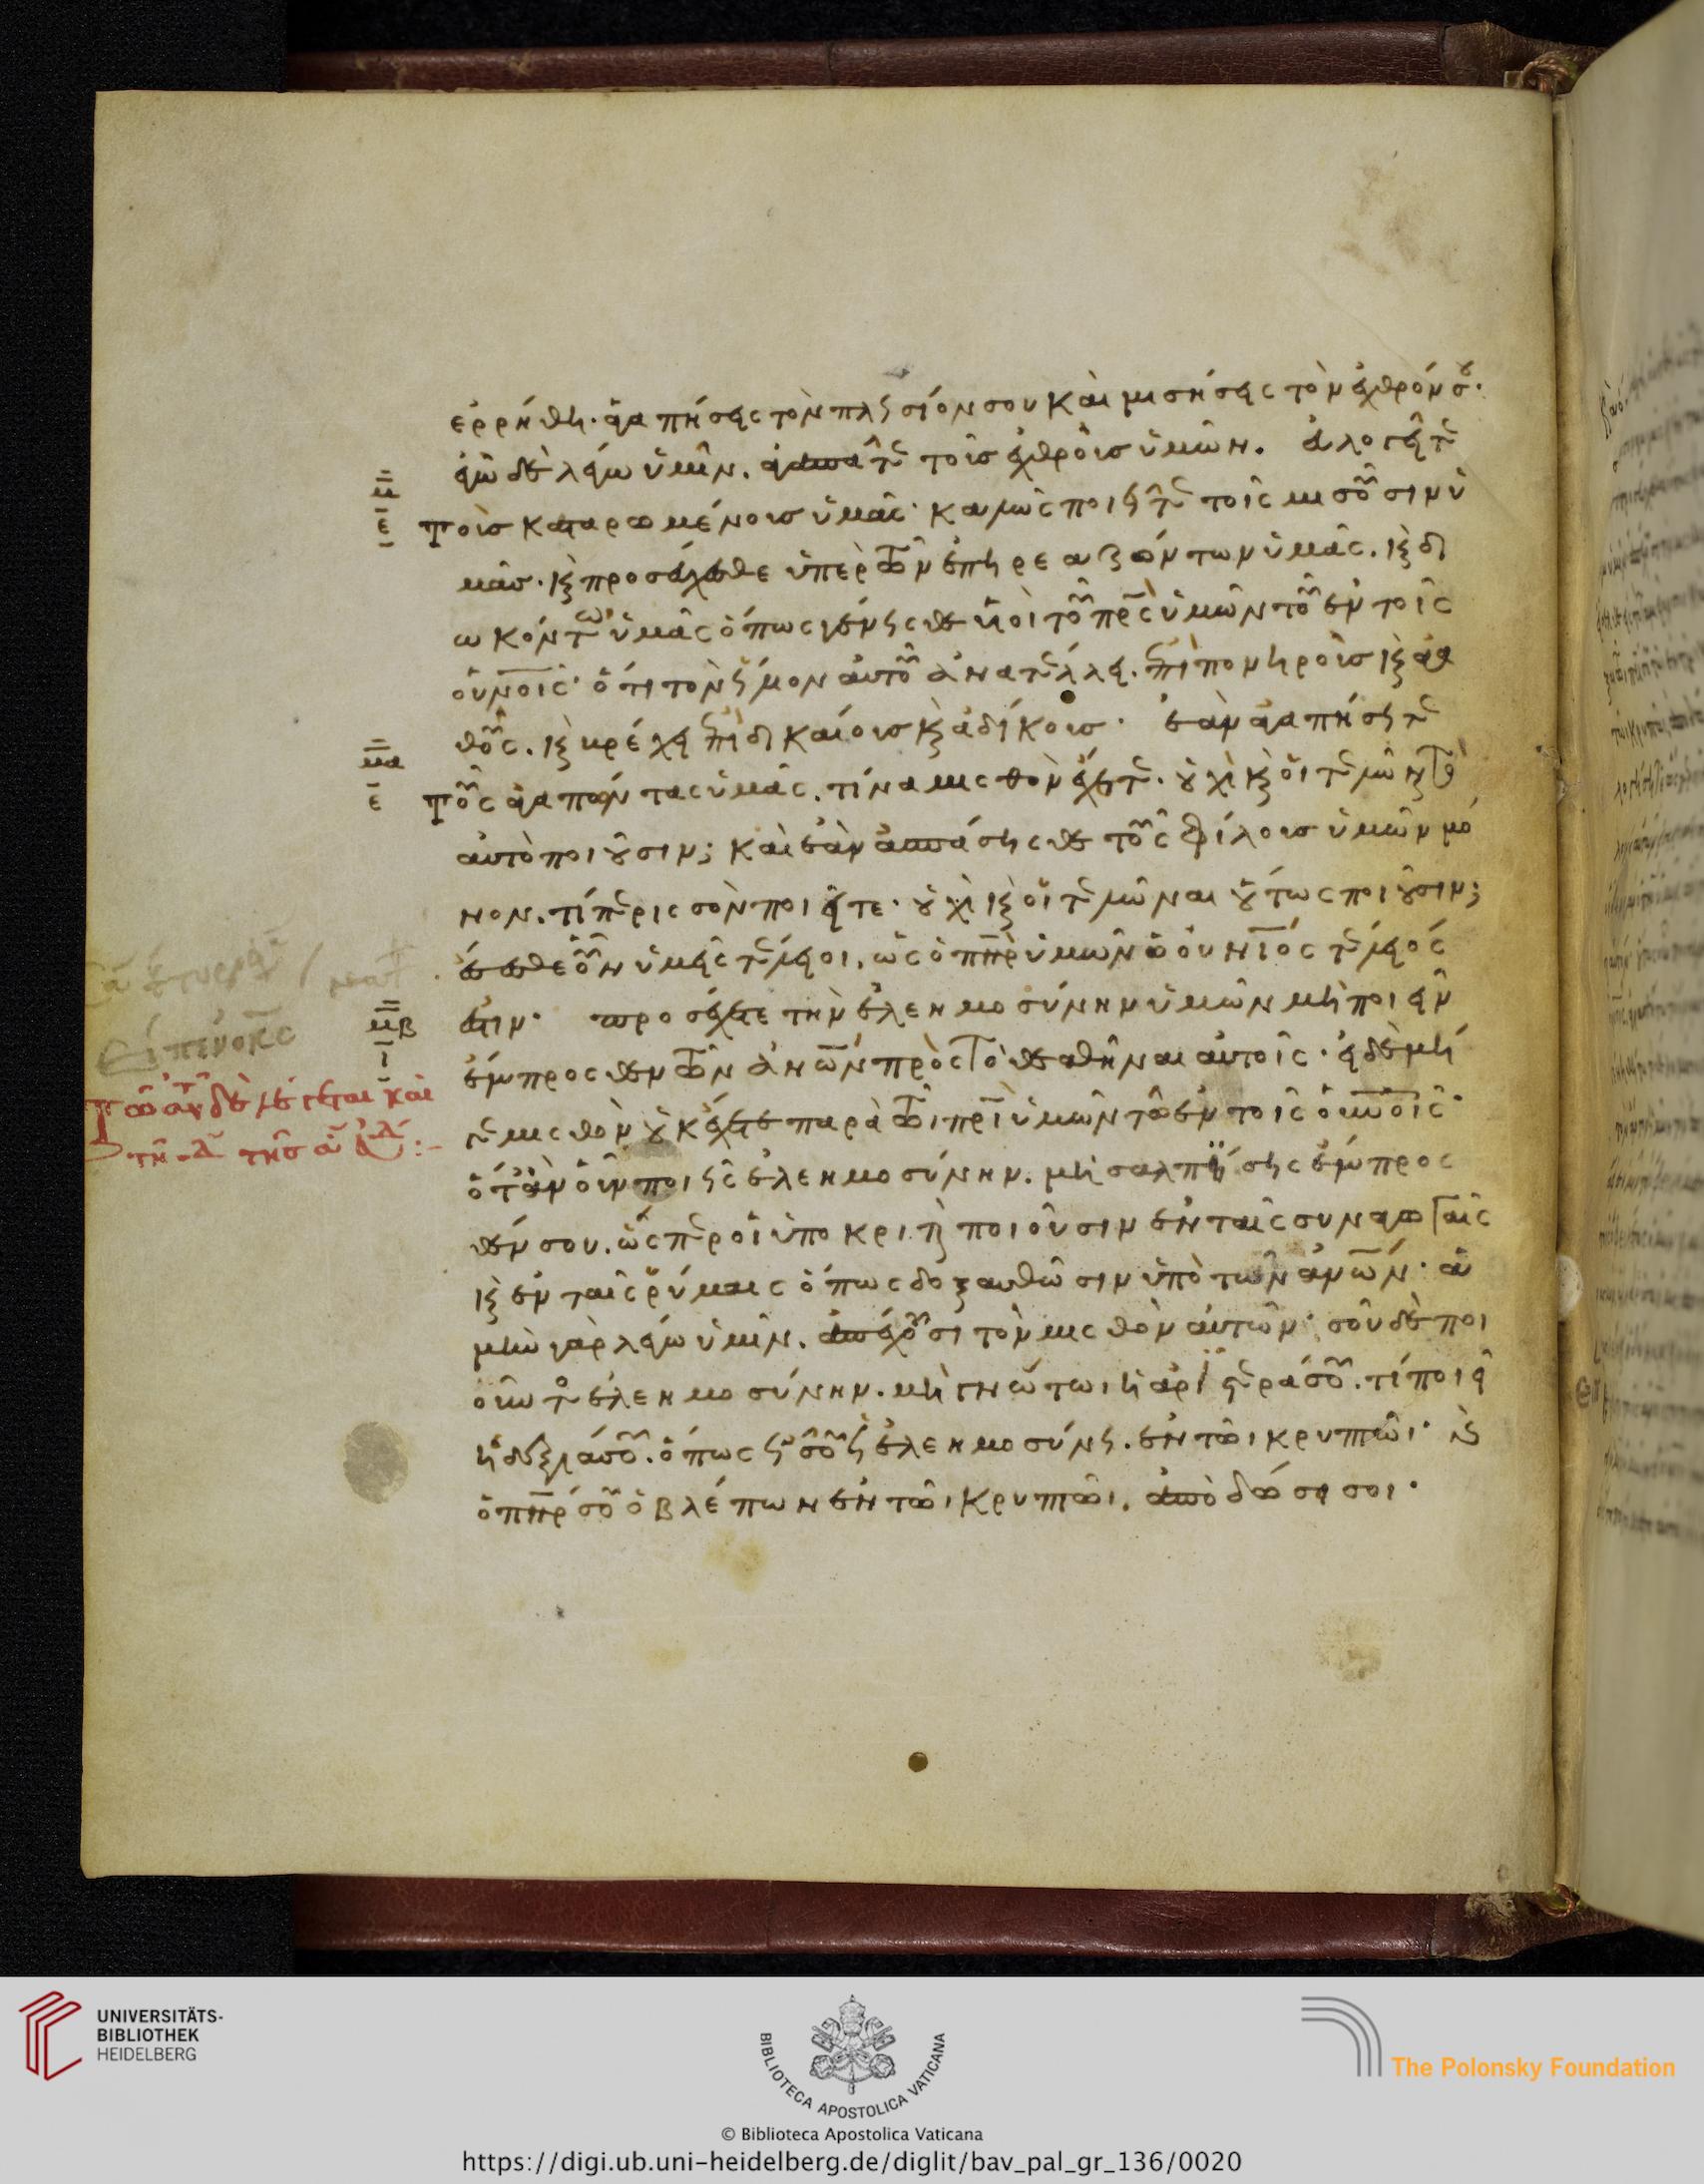 ἐρρήθη· ἀγαπήσεις τὸν πλησίον σου καὶ μισήσεις τὸν ἐχθρόν σου·
ἐγὼ δὲ λέγω ὑμῖν. ἀγαπᾶτε τοῖσ ἐχθροῖσ ὑμῶν. εὐλογεῖτε
μ
ε
τοῖσ καταρωμένοισ ὑμᾶς· καλῶς ποιῆτε τοῖς μισοῦσιν ὑ
μᾶσ· κ προσεύχεσθε ὑπὲρ τῶν ἐπηρεαζόντων ὑμᾶς. κ δι
ωκόντων ὑμᾶς ὅπως γένησθε υἱοὶ τοῦ πρς ὑμῶν τοῦ ἐν τοῖς
οὐνοῖς· ὅτι τὸν ἥλιον αὐτοῦ ἀνατέλλει. ἐπὶ πονηροῖσ κ ἀγα
θοῦς. κ βρέχει ἐπὶ δικαίοισ κ ἀδίκοισ· ἐὰν ἀγαπήσητε
μα
ε
τοὺς ἀγαπῶντας ὑμᾶς. τίνα μισθὸν ἔχετε. οὐχὶ κ οἱ τελῶναι τὸ
αὐτὸ ποιοῦσιν; καὶ ἐὰν ἀσπάσησθε τοὺς φίλουσ ὑμῶν μό
νον. τί περισσὸν ποιεῖτε· οὐχὶ κ οἱ τελῶναι οὕτως ποιοῦσιν;
ἔσεσθε οὖν ὑμεῖς τέλειοι. ὡς ὁ πηρ ὑμῶν ὁ οὐνιός τέλειός
μβ
ι
ἐστιν· προσέχετε τὴν ἐλεημοσύνην ὑμῶν μὴ ποιεῖν
ἔμπροσθεν τῶν ἀνων πρὸς τὸ θεαθῆναι αὐτοῖς· εἰ δὲ μή
γε μισθὸν οὐκ ἔχετε παρὰ τῶι πρι ὑμῶν τῶ ἐν τοῖς οὐνοῖς·
ὅταν οὖν ποιῆς ἐλεημοσύνην. μὴ σαλπίσης ἔμπροσ
θέν σου. ὥσπερ οἱ ὑποκριταὶ ποιοῦσιν ἐν ταῖς συναγωγαῖς
κ ἐν ταῖς ῥύμαις ὅπως δοξασθῶσιν ὑπὸ τῶν ἀνων· ἀ
μὴν γὰρ λέγω ὑμῖν. ἀπέχουσι τὸν μισθὸν αὐτῶν· σοῦ δὲ ποι
οῦντος ἐλεημοσύνην. μὴ γνώτω ἡ ἀριστερά σου. τί ποιεῖ
ἡ δεξιά σου. ὅπως ἦ σοῦ ἡ ἐλεημοσύνη. ἐν τῶι κρυπτῶι· κ
ὁ πηρ σοῦ ὁ βλέπων ἐν τῶι κρυπτῶι. ἀποδώσει σοι·
UNIVERSITÄTS-
BIBLIOTHEK
HEIDELBERG
BIBLIOTECA APOSTOLICA VATICANA
The Polonsky Foundation
© Biblioteca Apostolica Vaticana
https://digi.ub.uni-heidelberg.de/diglit/bav_pal_gr_136/0020